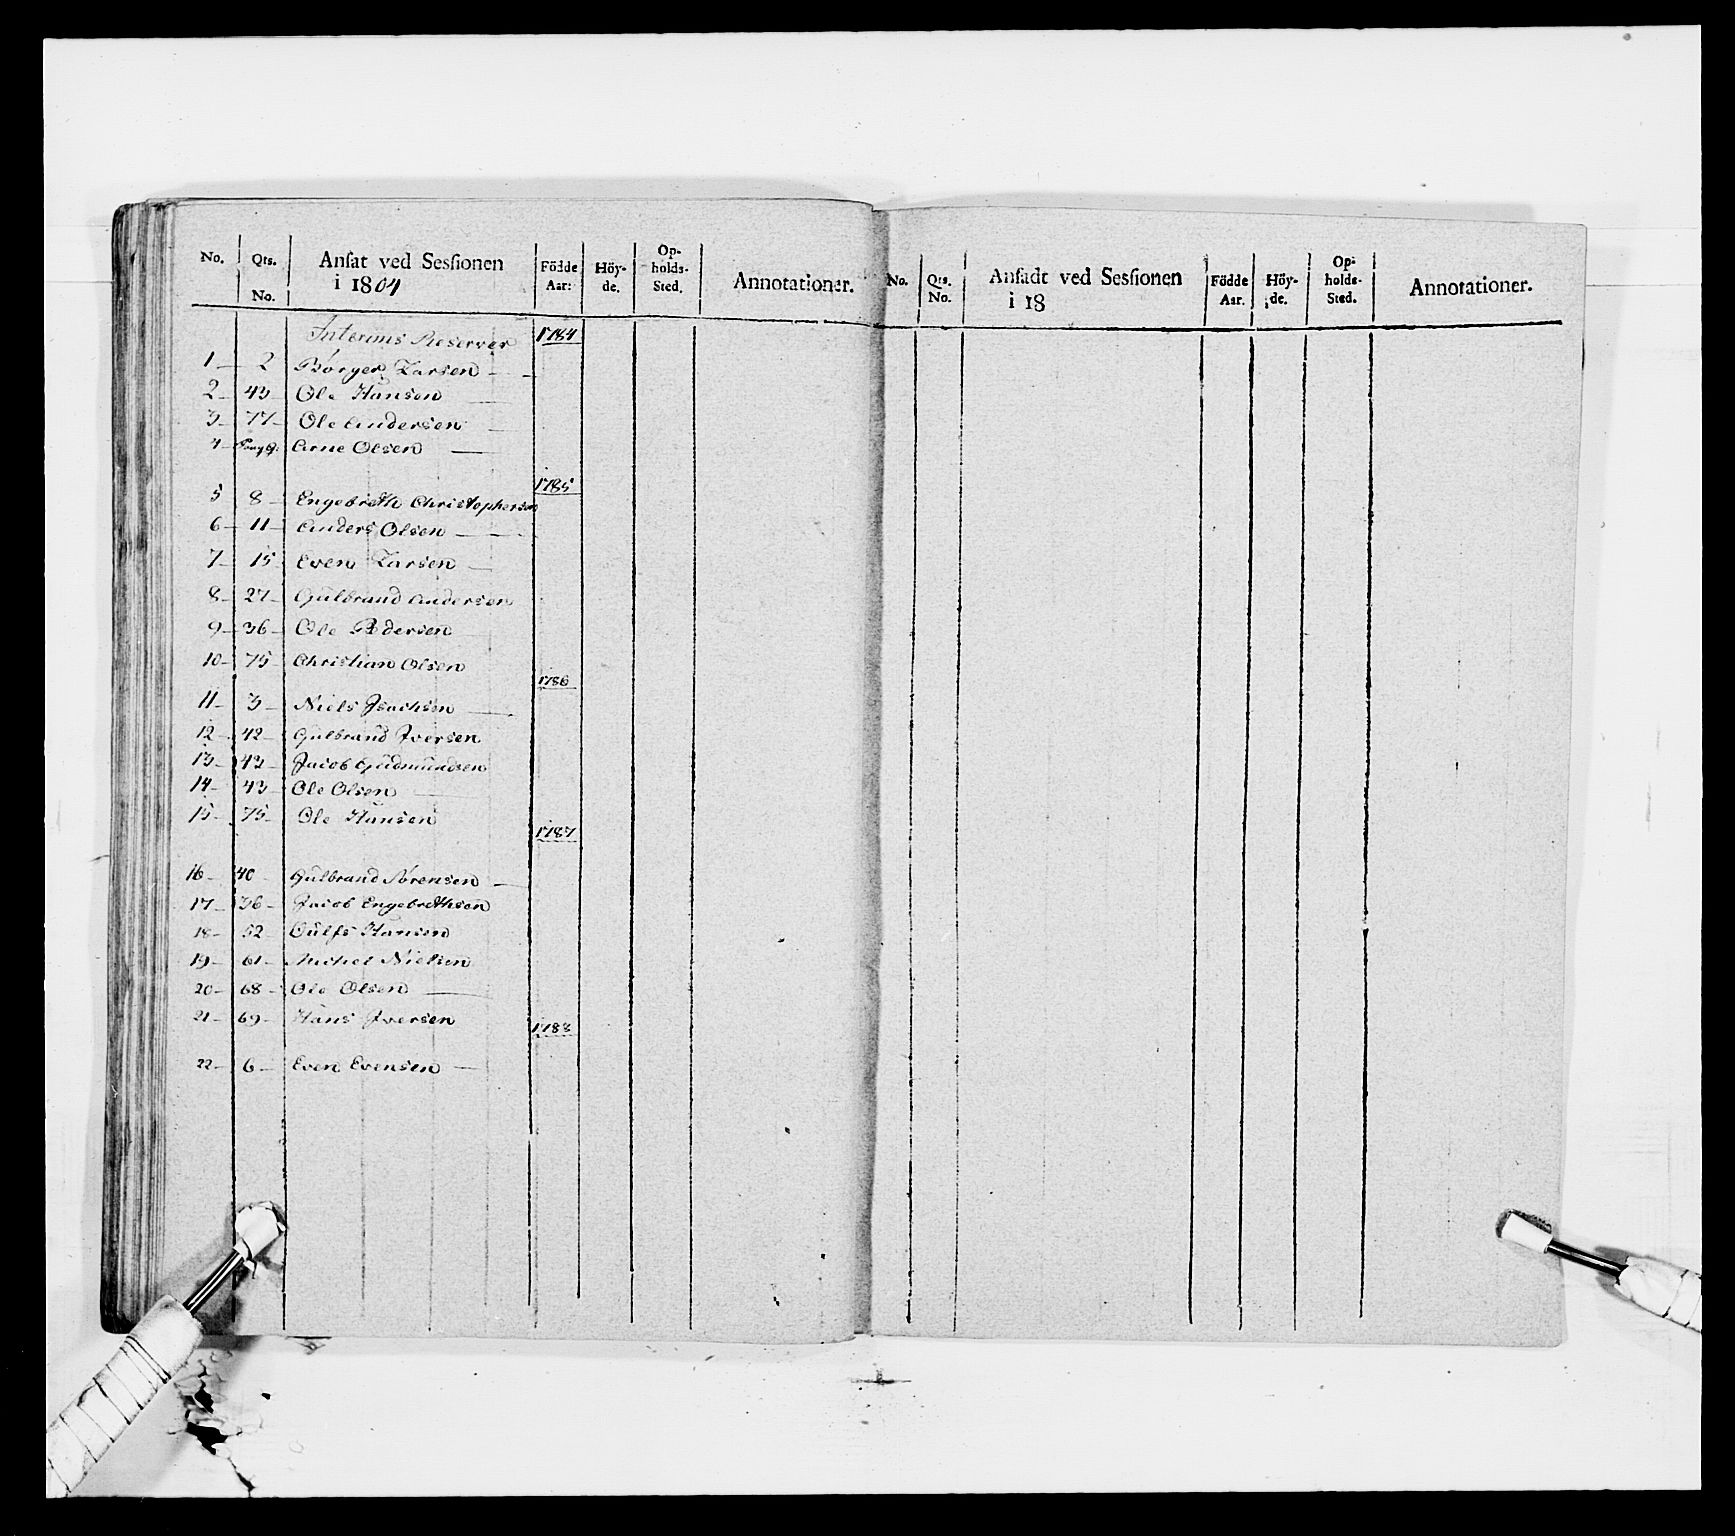 No. Qts. No. Ansat ved Sessionen i 1804 Födde Aar: Höy-de. Op-holds-Sted. Annotationer.
Interims Reserver 1784
1 2 Börger Larsen
2 43 Ole Hansen
3 77 Ole Andersen
4 Arne Olsen
1785
5 8 Engebreth Christophersen
6 11 Anders Olsen
7 15 Even Larsen
8 27 Gulbrand Andersen
9 36 Ole Pedersen
10 75 Christian Olsen
1786
11 3 Niels Isachsen
12 42 Gulbrand Iversen
13 43 Jacob Gudmundsen
14 43 Ole Olsen
15 75 Ole Hansen
1787
16 40 Gulbrand Sörensen
17 36 Jacob Engebrethsen
18 52 Hansen
19 61 Michel Nielsen
20 68 Ole Olsen
21 69 Hans Iversen
1788
22 6 Even Evensen
No. Qts. No. Ansadt ved Sessionen i 18 Födde Aar. Höy-de. Op-holds-Sted. Annotationer.